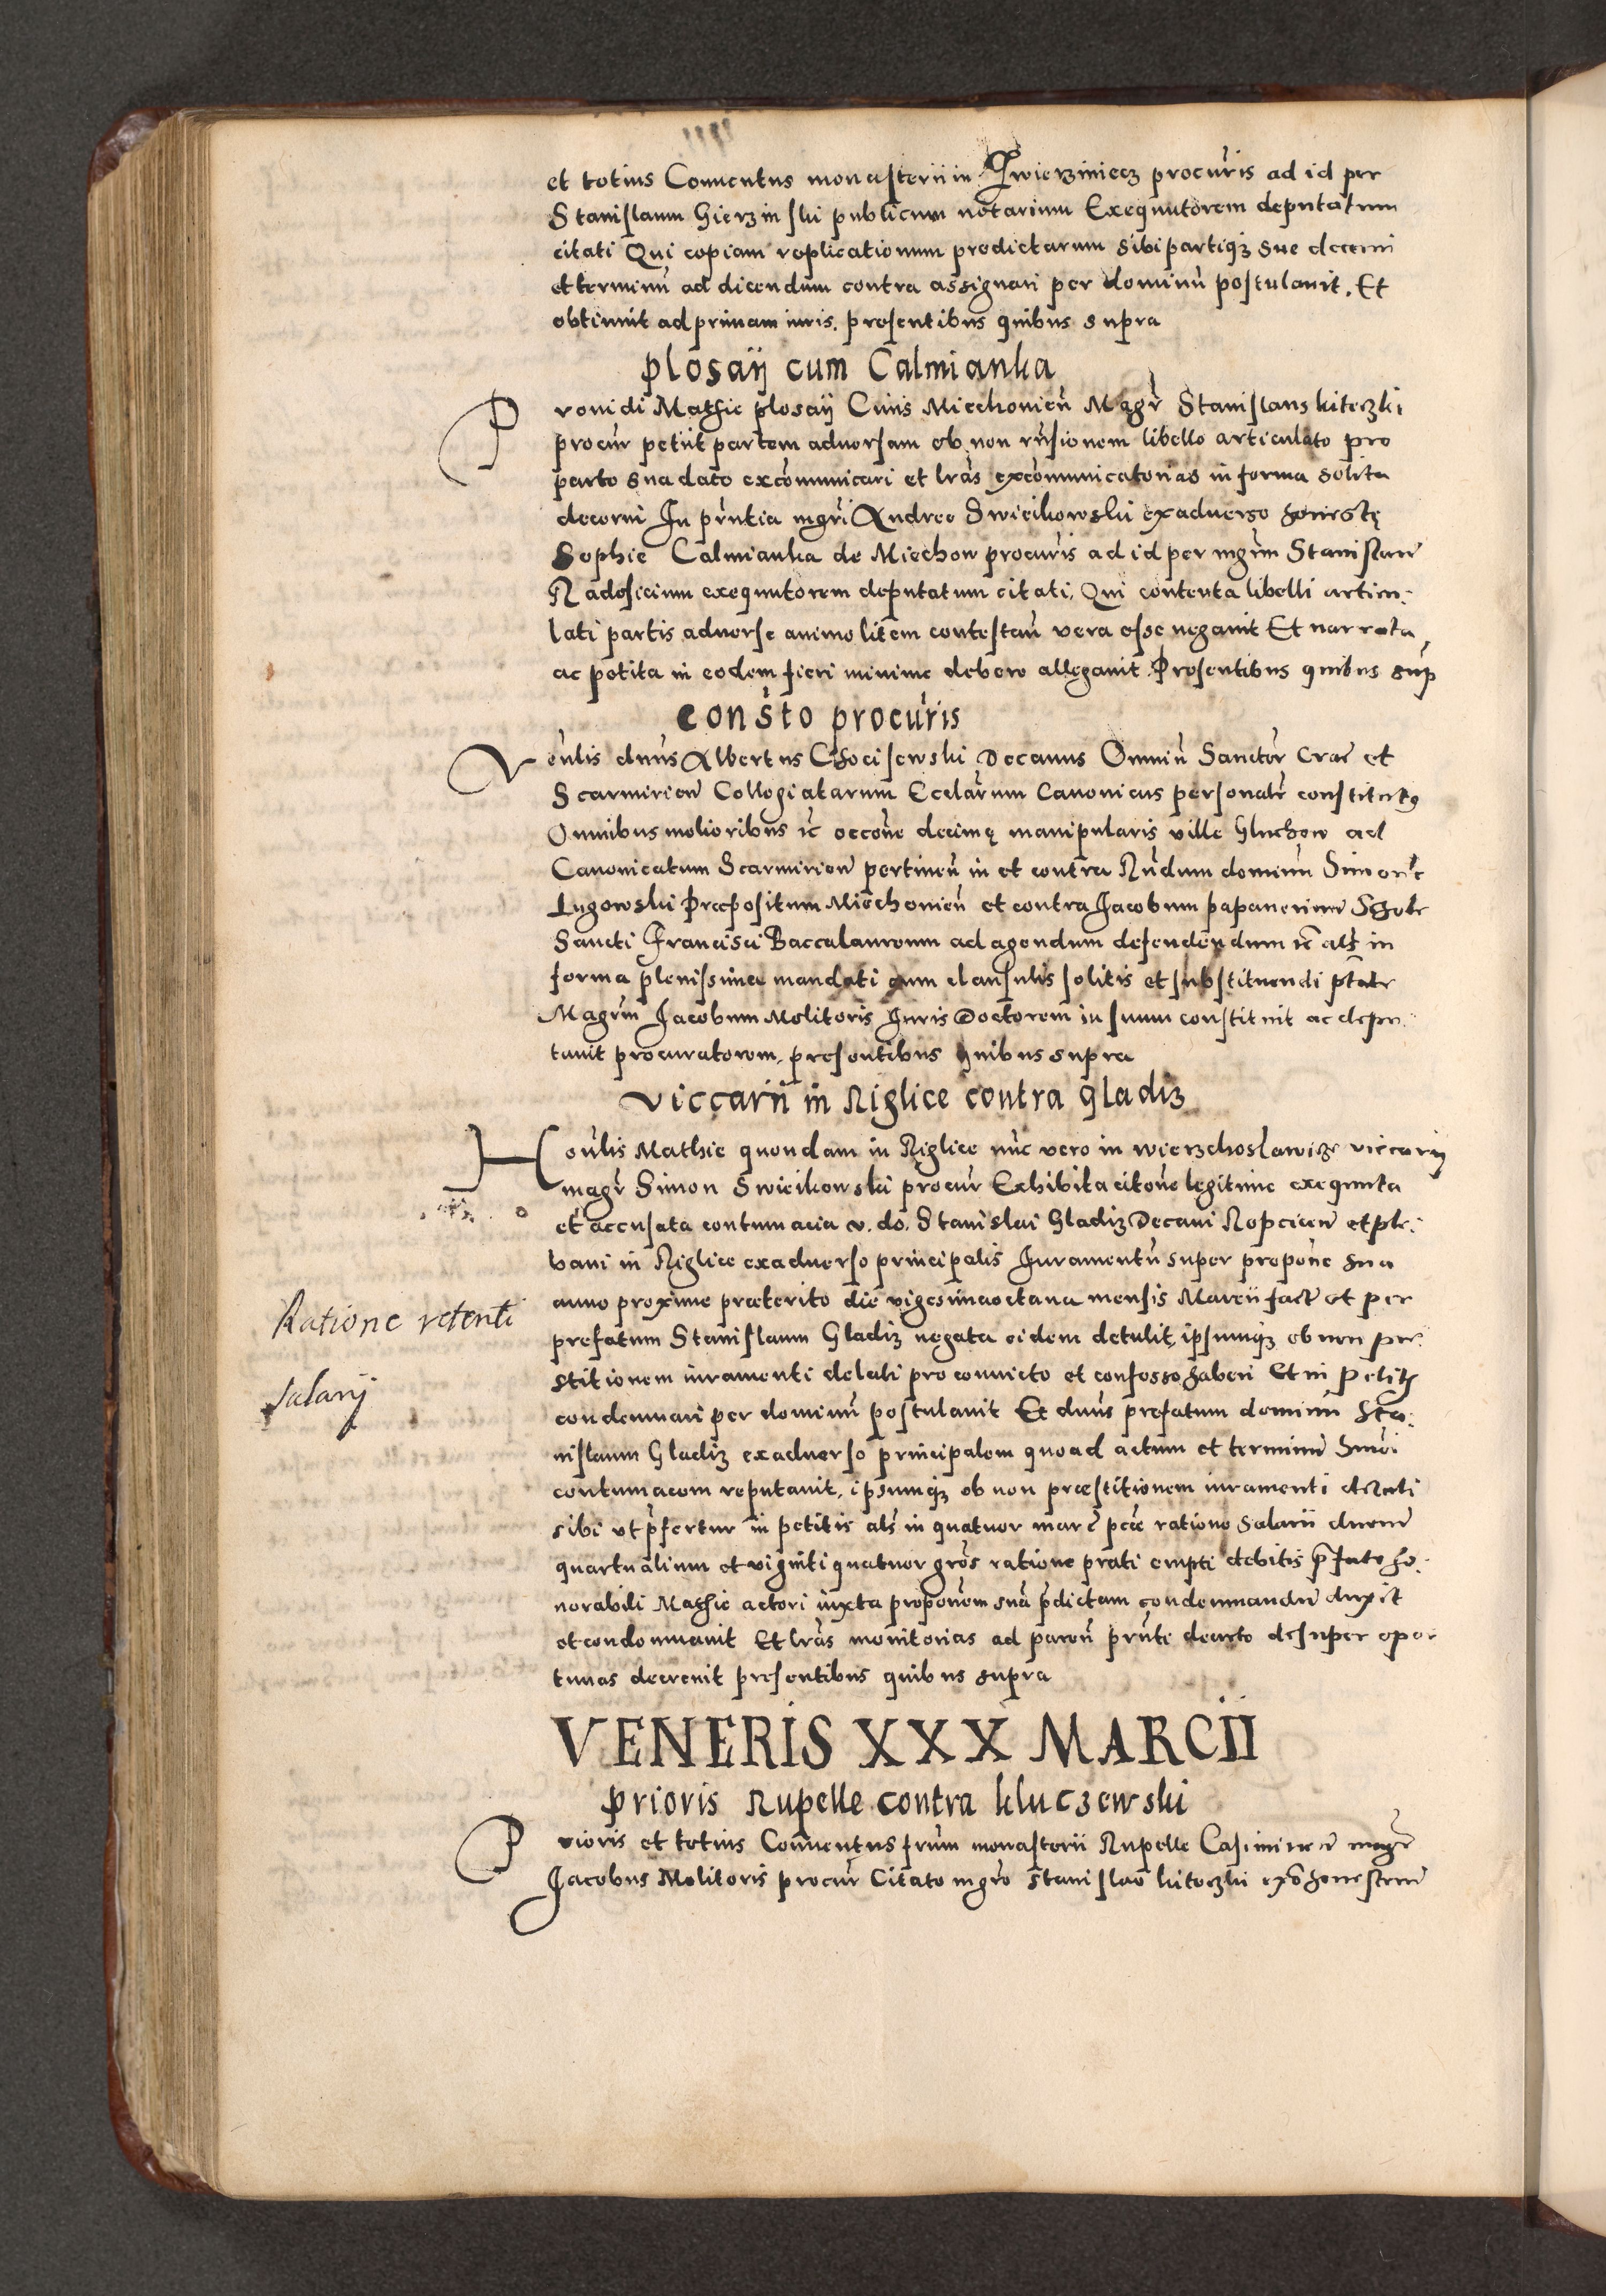 et totius Conuentus monasterii in Zwierziniecz procur̃is ad id per
Stanislaum Gierzinski publicum notarium Exequutorem deputatum
citati Qui copiam replicationum predictarum sibi partiq3 sue decerni
et terminũ ad dicendum contra assignari per dominũ postulauit. Et
obtinuit ad primam iuris. presentibus quibus supra
plosaij cum Calmianka
Prouidi Mathie plosaij Ciuis Miechonieñ Magr̃ Stanislaus kiterzki
procur̃ petiit partem aduersam ob non rñsionem libello articulato pro
parte sua dato excõmunicari et lr̃as excõmunicatorias in forma solita
decerni In pñtia mgr̃i Andree Swiecikowski exaduerso honestę
Sophie Calmianka de Miechow procur̃is ad id per mgr̃m Stanislaũ
Radosicium exequutorem deputatum citati, Qui contenta libelli articu-
lati partis aduerse animo litem contestañ vera esse negauit Et narrata
ac petita in eodem fieri minime debere allegauit. Presentibus quibus sup̃
consto procur̃is
Veñlis dñus Albertus Chocisewski Decanus Omniũ Sanctor̃ Crac̃ et
Scarmirieñ Collegiatarum Eccl̃arum Canonicus personalr̃ constitutus
Omnibus melioribus rc̃ occõne decimę manipularis ville Gluchow ad
Canonicatum Scarmirieñ pertineñ in et contra Rñdum dominũ Simonẽ
Lugowski Præpositum Miechonieñ et contra Jacobum papaneriuũ Schole
Sancti Francisci Baccalaureum ad agendum defendendum rc̃ als̃ in
forma plenissimea mandati cum clausulis solitis et substituendi ptãte
Magr̃m Jacobum Molitoris Juris Doctorem in suum constituit ac depu-
tauit procuratorem, presentibus quibus supra
Viccarii in Riglice contra gladi3
Hoñlis Mathie quondam in Riglice nũc vero in wierzchoslawice viccarij
magr̃ Simon Swiecikowski procur̃ Exhibita citõne legitime exequuta
et accusata contumacia v. do. Stanislai Gladi3 Decani Ropcicẽn et ple-
bani in Riglice exaduerso principalis Juramentũ super propõne sua
anno proxime præterito die vigesimaoctaua mensis Marcii fact̃ et per
prefatum Stanislaum Gladi3 negata eidem detulit, ipsumq3 ob non pre-
stitionem iuramenti delati pro conuicto et confesso haberi Et in petitis
condemnari per dominũ postulauit Et dñus prefatum dominũ Sta-
nislaum Gladi3 exaduerso principalem quoad actum et terminũ hmõi
contumacem reputauit, ipsumq3 ob non præstitionem iuramenti delati
sibi vt p̃fertur in petitis als̃ in quatuor marc̃ pec̃ ratione Salarii duorũ
quartualium et viginti quatuor gros̃ ratione prati empti debitis p̃fato ho-
norabili Mathie actori iuxta propõnem suã p̃dictam condemnandũ duxit
et condemnauit Et lr̃as monitorias ad pareñ pñti decreto desuper opor-
tunas decreuit presentibus quibus supra
Ratione retenti
salarij
VENERIS XXX MARCII
prioris Rupelle contra kluczewski
Prioris et totius Conuentus fr̃um monasterii Rupelle Casimireñ magr̃
Jacobus Molitoris procur̃ Citato mgr̃o Stanislao kiterzki exõ honestorũ